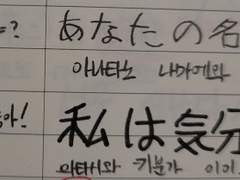 =?
あなたの名
아나타노 나마에와
아!
私は気分
와타시와 키분가 이이